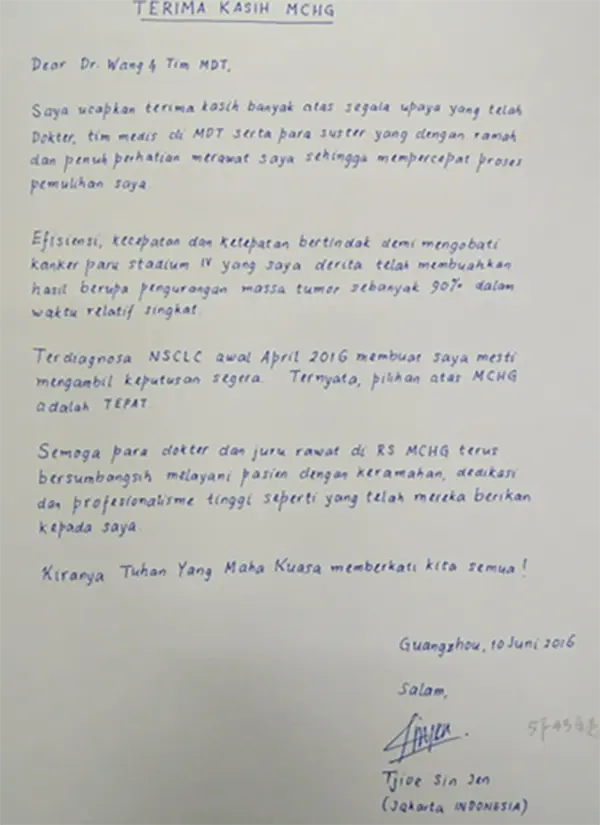 TERIMA KASIH MCHG
Dear Dr. Wang & Tim MDT,
Saya ucapkan terima kasih banyak atas segala upaya yang telah
Dokter, tim medis di MDT serta para suster yang dengan ramah
dan penuh perhatian merawat saya sehingga mempercepat proses
pemulihan saya.
Efisiensi, kecepatan dan ketepatan bertindak demi mengobati
kanker paru stadium IV yang saya derita telah membuahkan
hasil berupa pengurangan massa tumor sebanyak 90% dalam
waktu relatif singkat.
Terdiagnosa NSCLC awal April 2016 membuat saya mesti
mengambil keputusan segera. Ternyata, pilihan atas MCHG
adalah TEPAT.
Semoga para dokter dan juru rawat di RS MCHG terus
bersumbangsih melayani pasien dengan keramahan, dedikasi
dan profesionalisme tinggi seperti yang telah mereka berikan
kepada saya.
Kiranya Tuhan Yang Maha Kuasa memberkati kita semua!
Guangzhou, 10 Juni 2016
Salam,
Tjioe Sin Jen
(Jakarta INDONESIA)